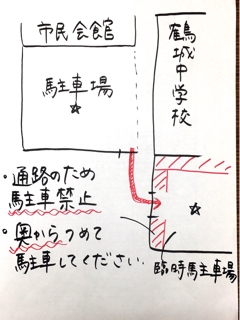 市民会館
駐車場
☆
鶴城中学校
・通路のため
駐車禁止
・奥からつめて
駐車してください
☆
臨時駐車場